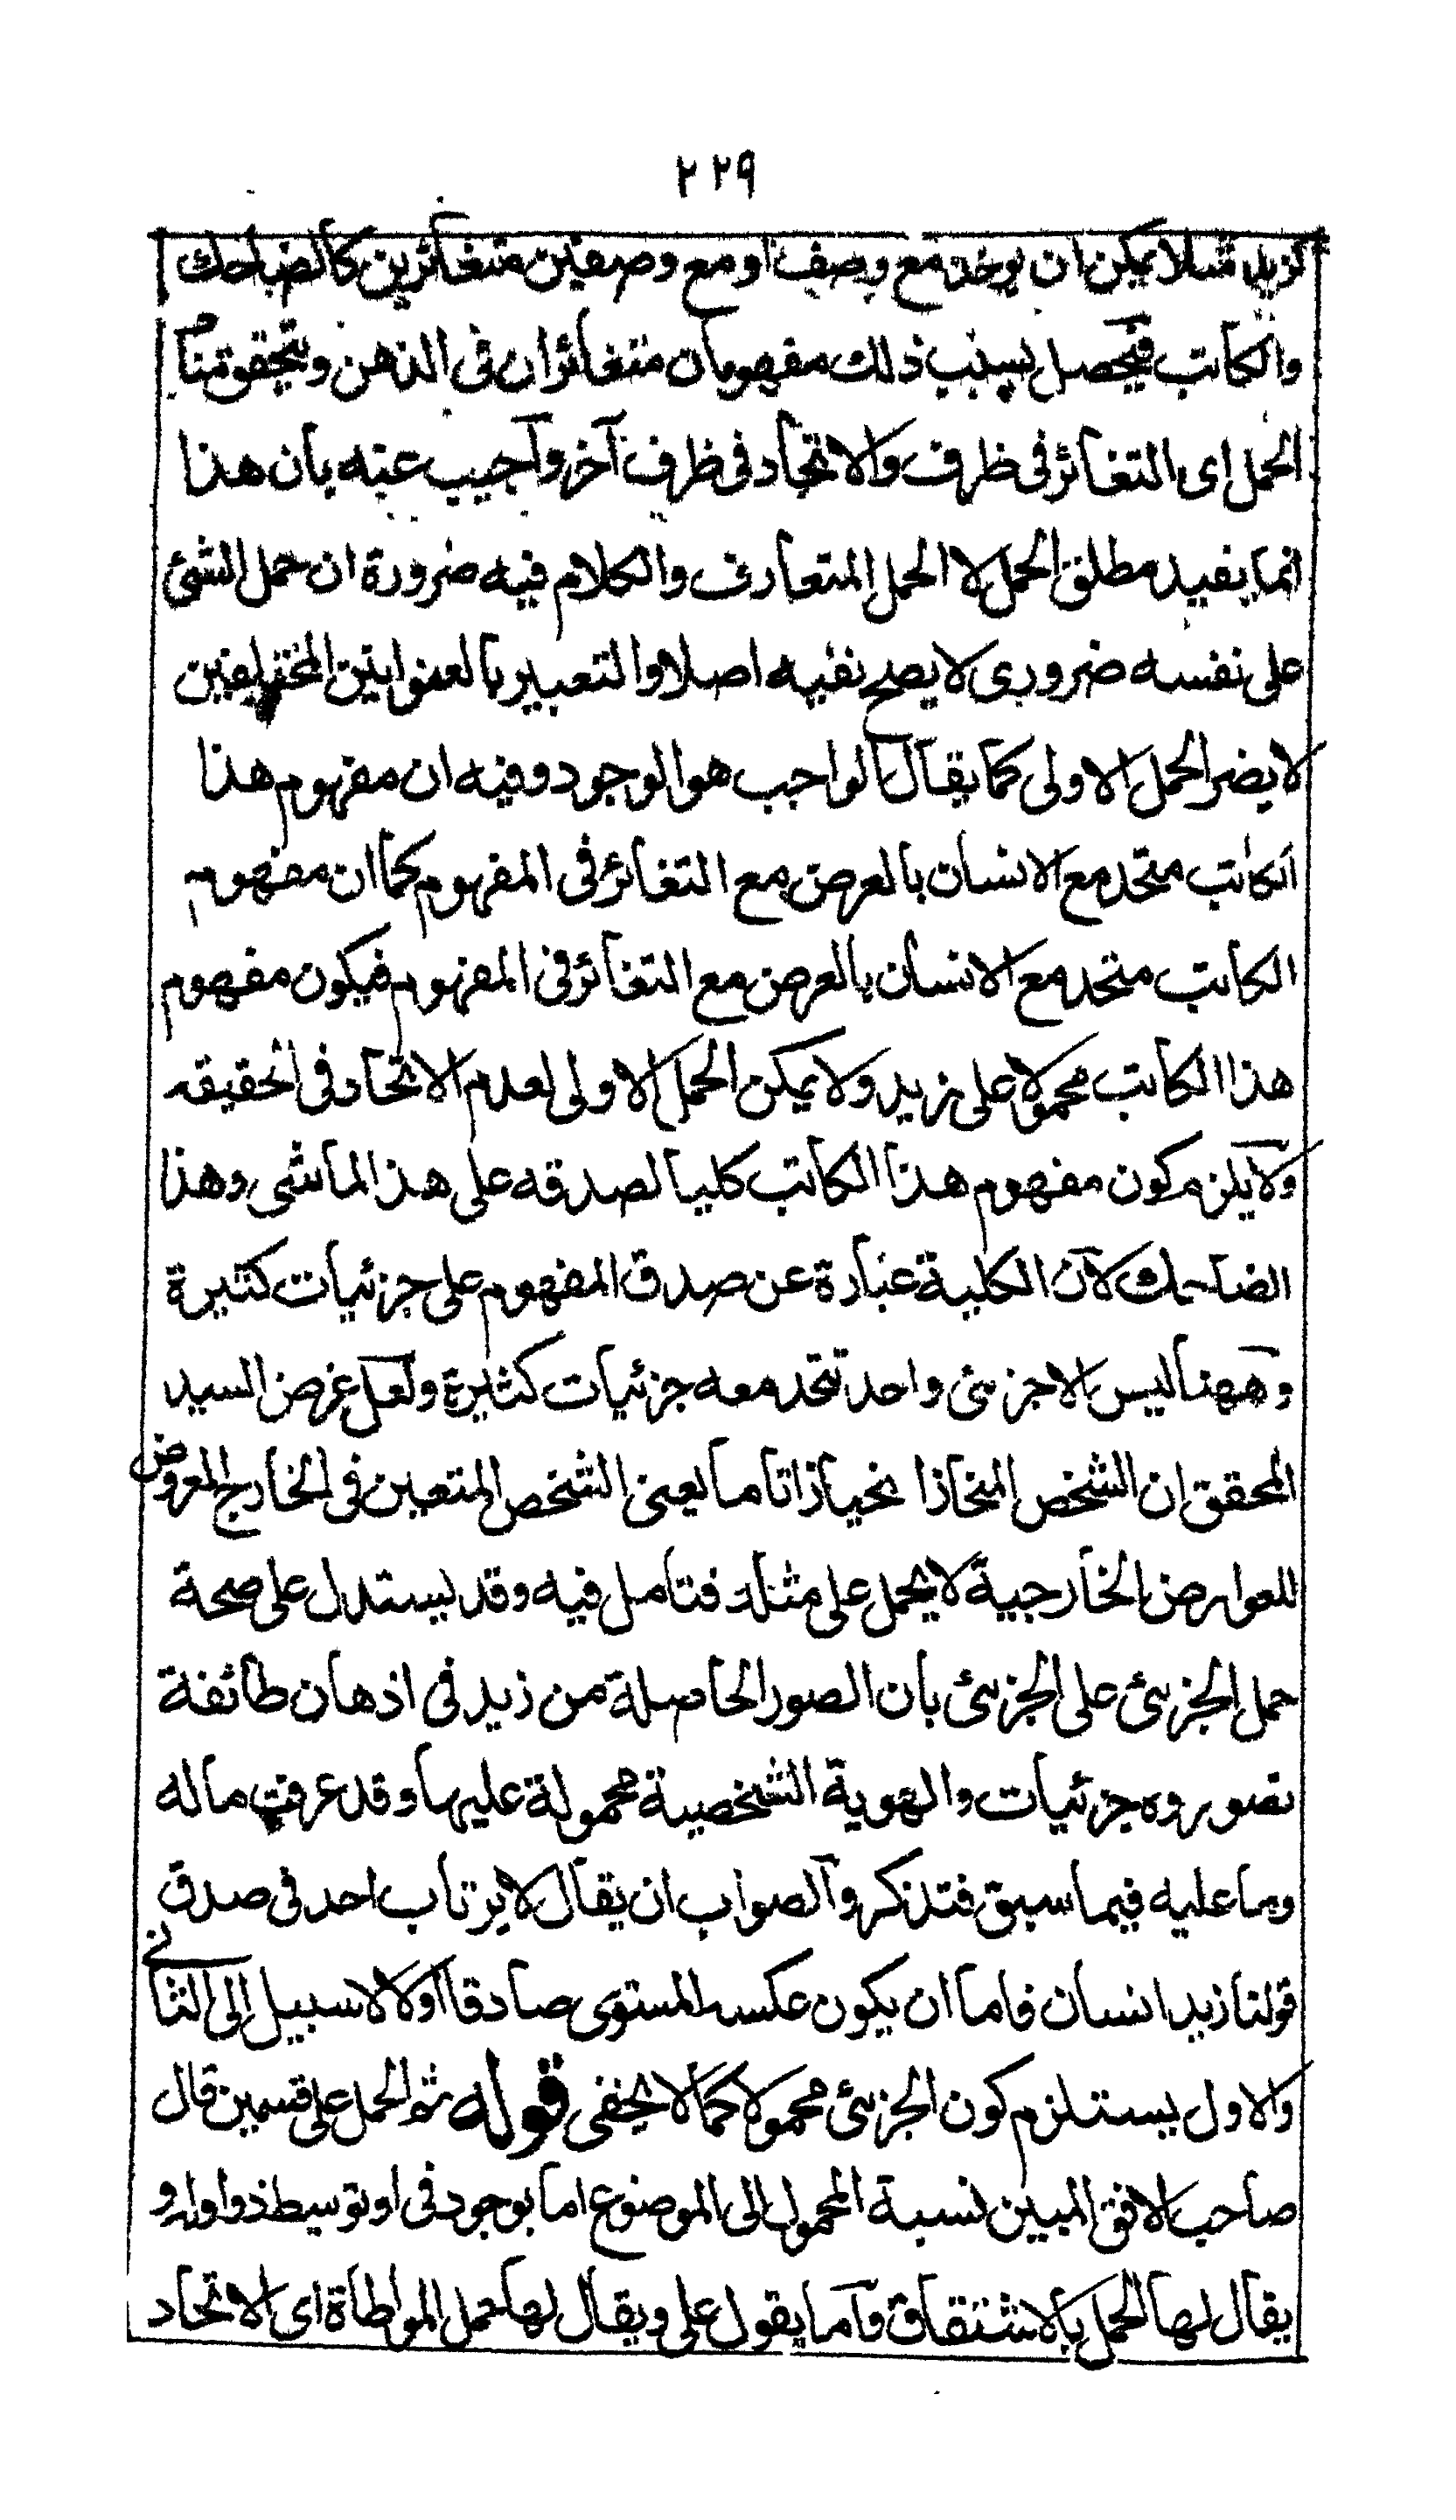 ٢٢٩
كزيد مثلا يمكن ان يوخذ مع وصف او مع وصفين متغائرين كالضاحك
والكاتب فيحصل بسبب ذلك مفهومان متغائران فى الذهن ويتحقق مناط
الحمل اى التغائر فى ظرف والاتحاد فى ظرف آخر وآجيب عنه بان هذا
انما يفيد مطلق الحمل لا الحمل المتعارف والكلام فيه ضرورة ان حمل الشئ
على نفسه ضرورى لا يصح نفيه اصلا والتعبير بالعنوانين المختلفين
لا يضر الحمل الاولى كما يقال الواجب هو الوجود وفيه ان مفهوم هذا
الكاتب متحد مع الانسان بالعرض مع التغائر فى المفهوم كما ان مفهوم
الكاتب متحد مع الانسان بالعرض مع التغائر فى المفهوم فيكون مفهوم
هذا الكاتب محمولا على زيد ولا يمكن الحمل الاولى لعدم الاتحاد فى الحقيقه
ولآ يلزم كون مفهوم هذا الكاتب كليا لصدقه على هذا الماشى وهذا
الضاحك لآن الكلية عبارة عن صدق المفهوم على جزئيات كثيرة
وههنا ليس الا جزئى واحد تتحد معه جزئيات كثيرة ولعل غرض السيد
المحقق ان الشخص المنحاز انحيازا تاما يعنى الشخص المتعين فى الخارج المعروض
للعوارض الخارجية لا يحمل على مثله فتامل فيه وقد يستدل على صحة
حمل الجزئى على الجزئى بان الصور الحاصلة من زيد فى اذهان طائفة
تصوروه جزئيات والهوية الشخصية محمولة عليها وقد عرفت ماله
وما عليه فيما سبق فتذكر وآلصواب ان يقال لا يرتاب احد فى صدق
قولنا زيد انسان فاما ان يكون عكسه المستوى صادقا اولا لا سبيل الى الثانى
والاول يستلزم كون الجزئى محمولا كما لا يخفى قوله ثم الحمل على قسمين قال
صاحب الافق المبين نسبة المحمول الى الموضوع اما بوجود فى او توسيط ذو اوله و
يقال لها الحمل بالاشتقاق وآما بقول على ويقال لها حمل المواطاة اى الاتحاد